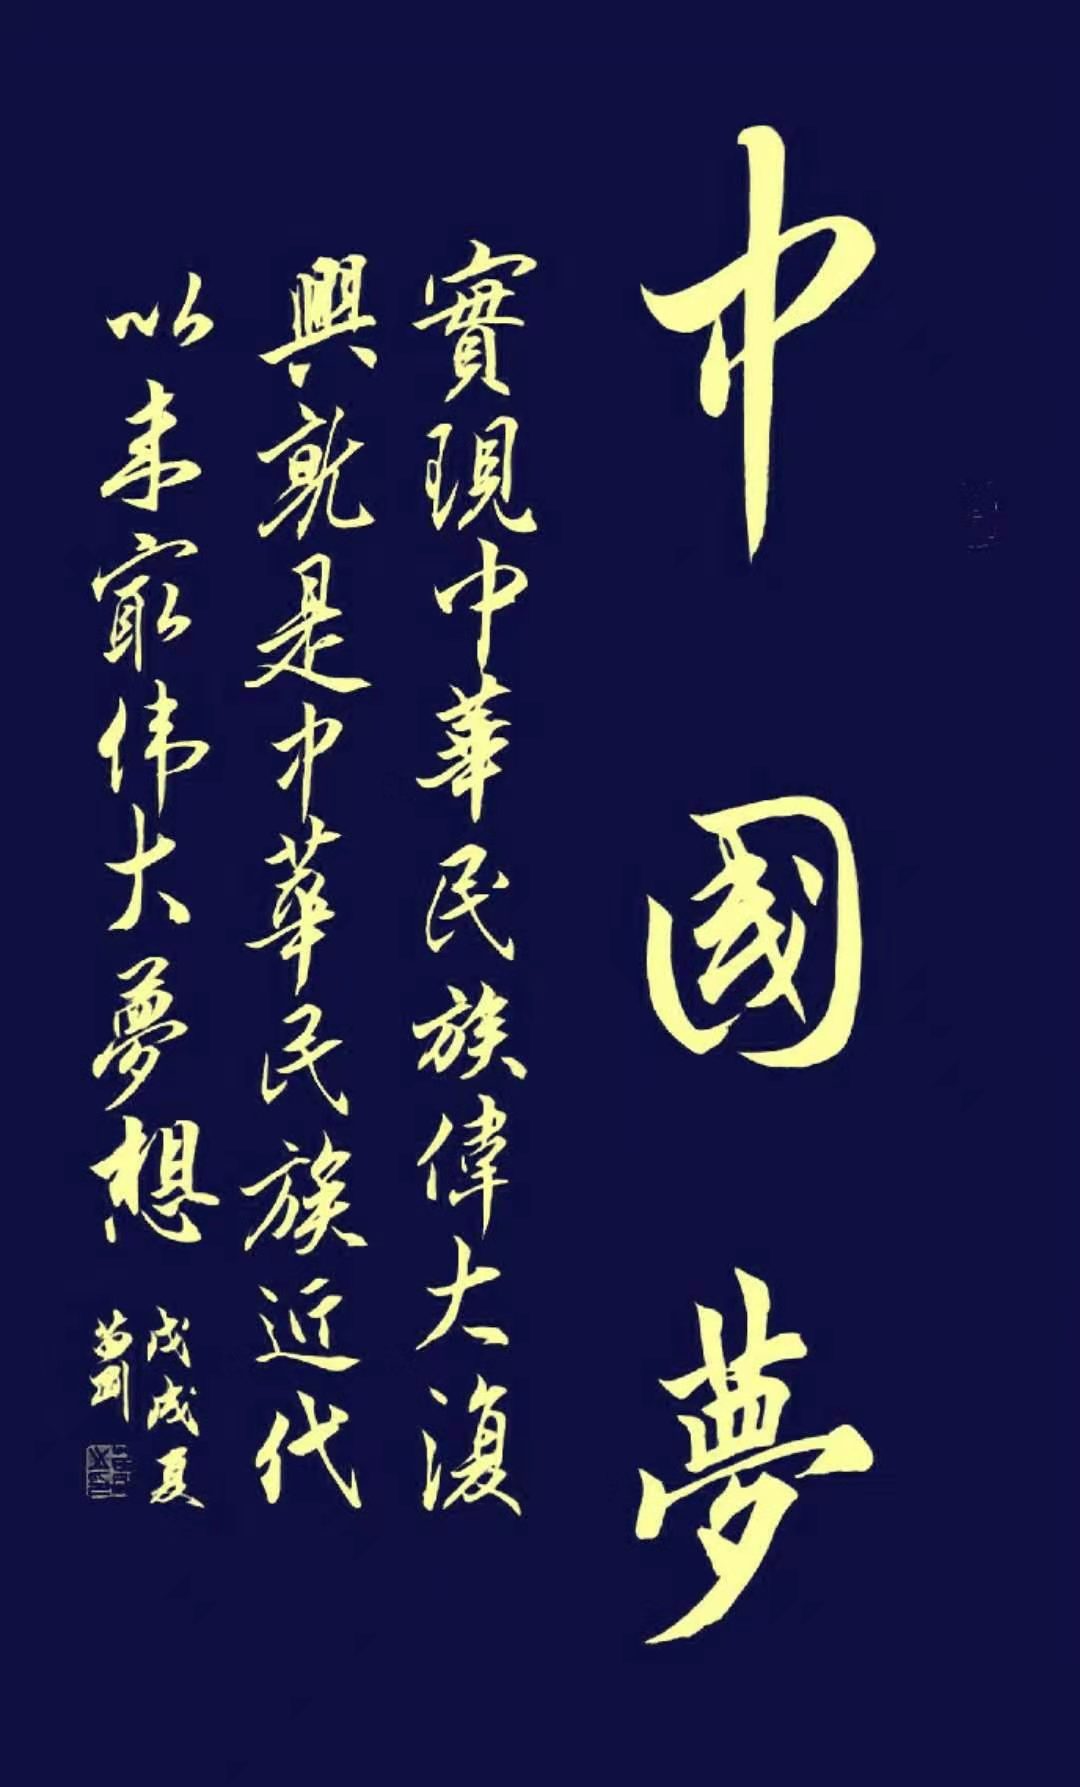 中國夢
實現中華民族偉大復
興就是中華民族近代
以来最伟大夢想
戊戌夏